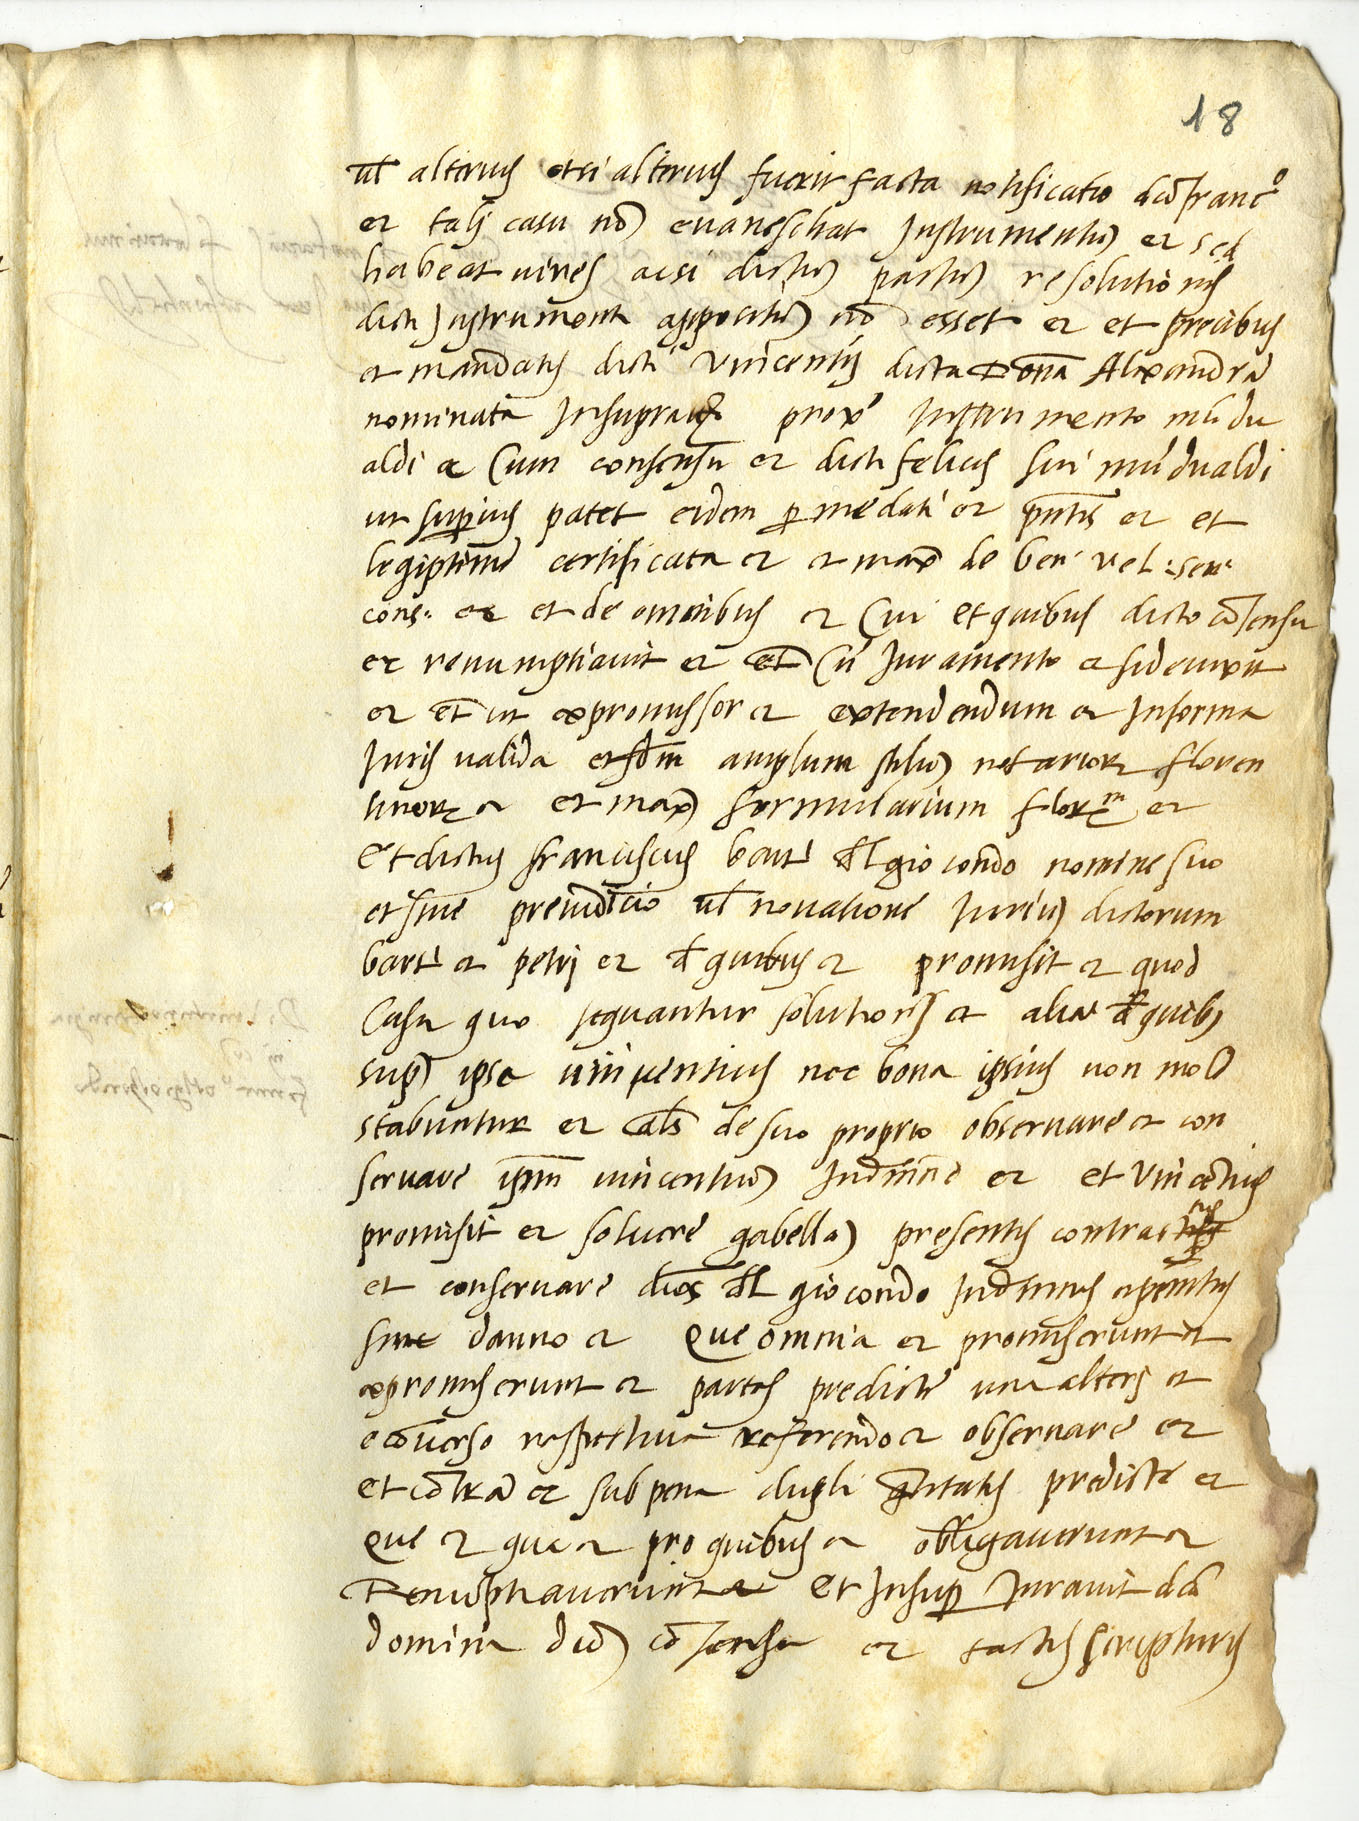 18
ul alterius et si alterius fuerit facta notificatio dco franc.o
et talj casu no evaneschat Instrumentu et sed
habeat vires ac si dictu pactu resolutionis
dicti Instrumenti appositu no esset et et precibus
et mandatis dicti Vincentij dicta Dona Alexandra
nominata in supra prox.o Instrumento mudu
aldi et Cum consensu et dicti felicis sui mudualdi
ut superius patet eidem p me dati et pntis et et
legiptime certificata et et max de ben: vel: sen:
cons: et et de omnibus et Cui et quibus dicto cosensu
et renumptiavit et et Cu Iuramento et fideiuxit
et et ut expromissor et extendendum et In forma
Juris valida et sdm amplum stilu notarior floren
tinor et et max formularium flor.m et
Et dictus franciscus bart.i del giocondo nomine suo
et sine preiuditio vl novatione Juriu dictorum
bart.i et petrj et de quibus et promisit et quod
Casu quo sequantur solutiones et alia de quib
sup.a ipse vincentius nec bona ipsius non mole
stabuntur et als de suo proprio observare et con
servare ipm vincentiu Indmne et et Vincentius
promisit et solvere gabella presentis contractus
et conservare dios del giocondo Indmnes et penitus
sine danno et Que omnia et promiserunt et
expromiserunt et partes predicte una alterj et
econverso respective referendo et observare et
et cotra et sub pena dupli qtitatis predicte et
Que et que et pro quibus et obligaverunt et
Renuptiaverunt et Et Insup Juravit dca
domina dco cosensu et tactis scripturis